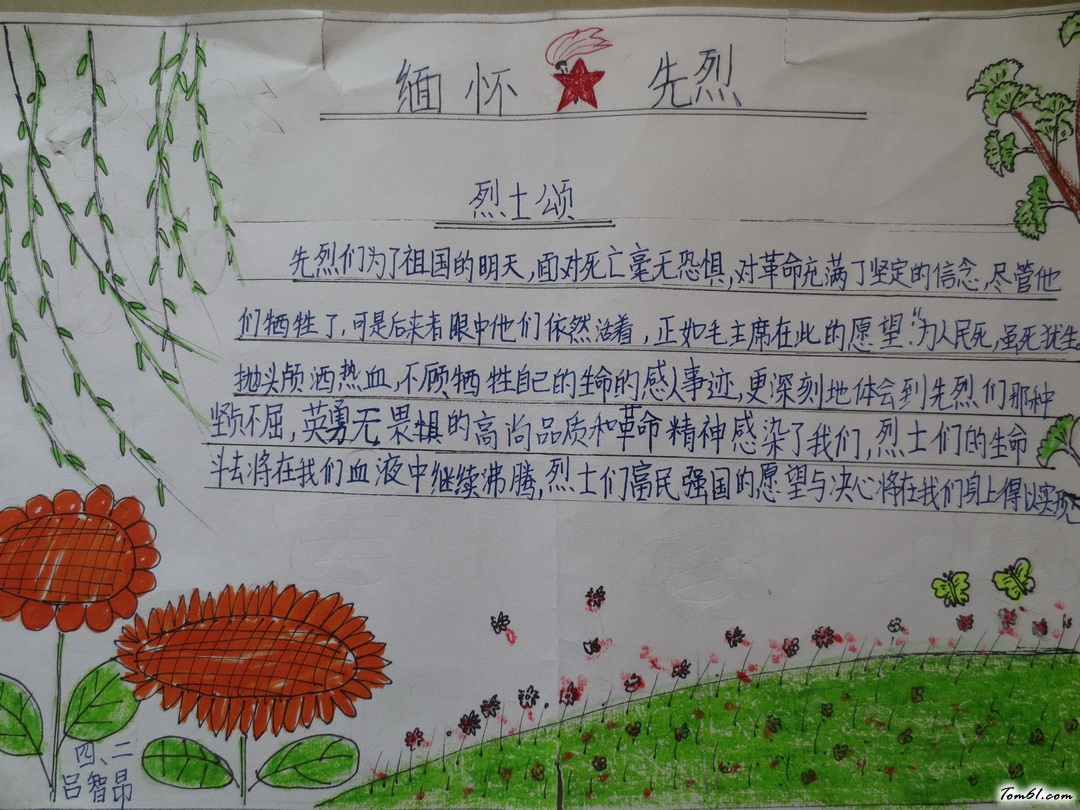 缅怀 先烈
烈士颂
先烈们为了祖国的明天,面对死亡毫无恐惧,对革命充满了坚定的信念,尽管他
们牺牲了,可是后来者眼中他们依然活着,正如毛主席在此的愿望:"为人民死,虽死犹生
抛头颅洒热血,不顾牺牲自己的生命的感人事迹,更深刻地体会到先烈们那种
坚贞不屈,英勇无畏惧的高尚品质和革命精神感染了我们,烈士们的生命
斗去将在我们血液中继续沸腾,烈士们富民强国的愿望与决心将在我们身上得以实现
四、二
吕智昂
Tom61.com